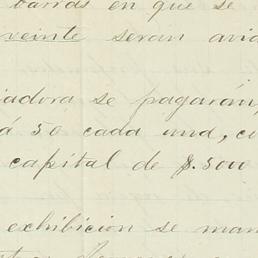 barras en que se
veinte seran avia
iadora se pagarán,
á 50 cada una, c
capital de $.5000
exhibicion se man